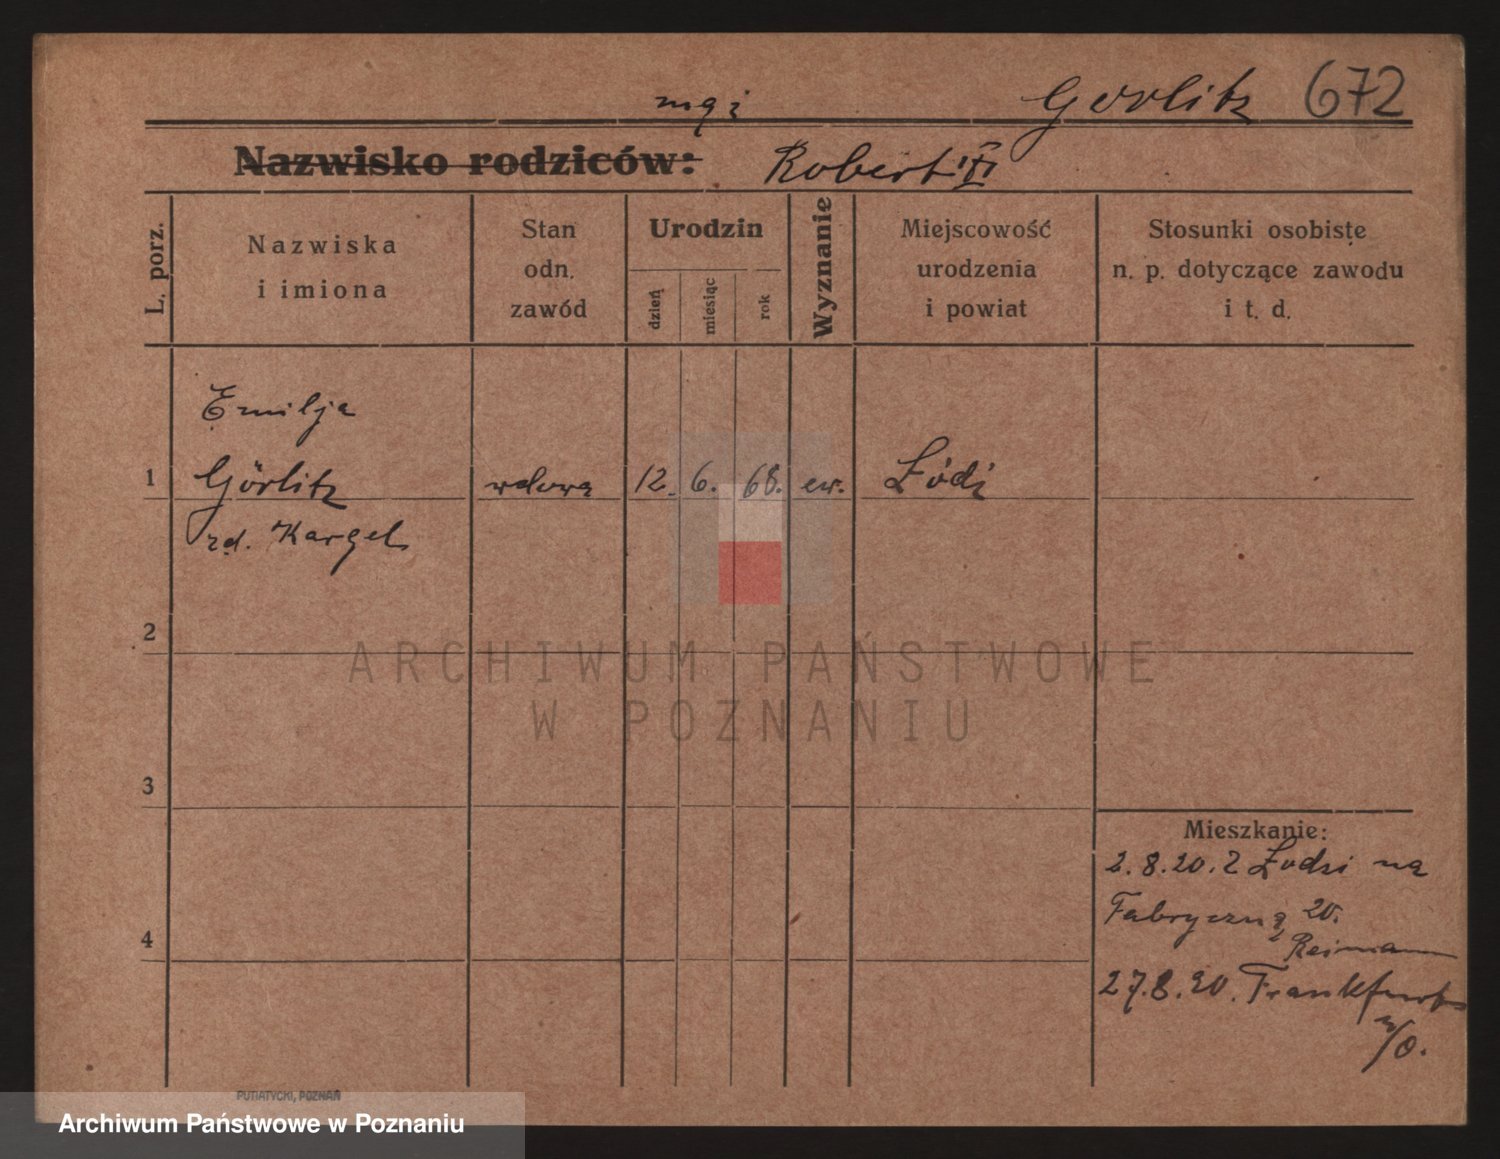 mąż Gorlitz 672
Nazwisko rodziców: Robert
L. porz.
Nazwiska
i imiona
Stan
odn.
zawód
Urodzin
dzień
miesiąc
rok
Wyznanie
Miejscowość
urodzenia
i powiat
Stosunki osobiste
n. p. dotyczące zawodu
i t. d.
Emilja
1 Görlitz wdowa 12. 6. 68. ew. Łódź
rd. Kargel
2
3
4
ARCHIWUM PAŃSTWOWE
W POZNANIU
Mieszkanie:
2.8.20. z Łodzi na
Fabryczną 20.
Reimann
27.8.20. Frankfurt
/O.
PUTIATYCKI, POZNAŃ
Archiwum Państwowe w Poznaniu